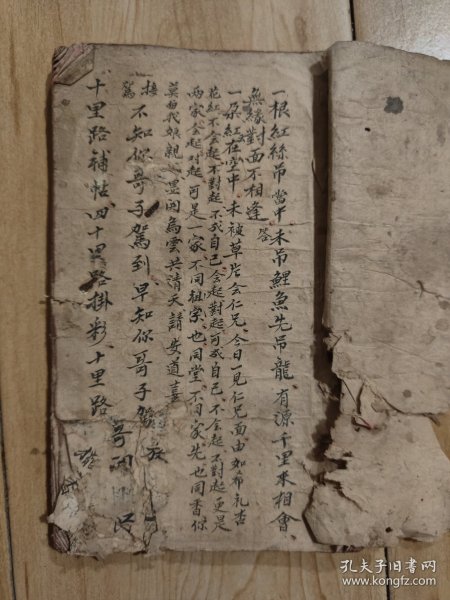 一根紅絲吊當中未吊鯉魚先吊龍有源千里來相會
無緣對面不相逢
答
一朵紅在空中未被草片会仁兄今日一見仁兄面由如布礼吉
花紅不会起不對起不成自己会起對起可成自己不会起不對起更是
两家会起对起可是一家不同祖宗也同堂不同家先也同香你
莫由我娘親
雲共清天請安道喜
接駕
不知你哥子駕到早知你哥子駕
十里路補帖四十里路掛彩十里路
孔夫子旧书网
www.kongfz.com